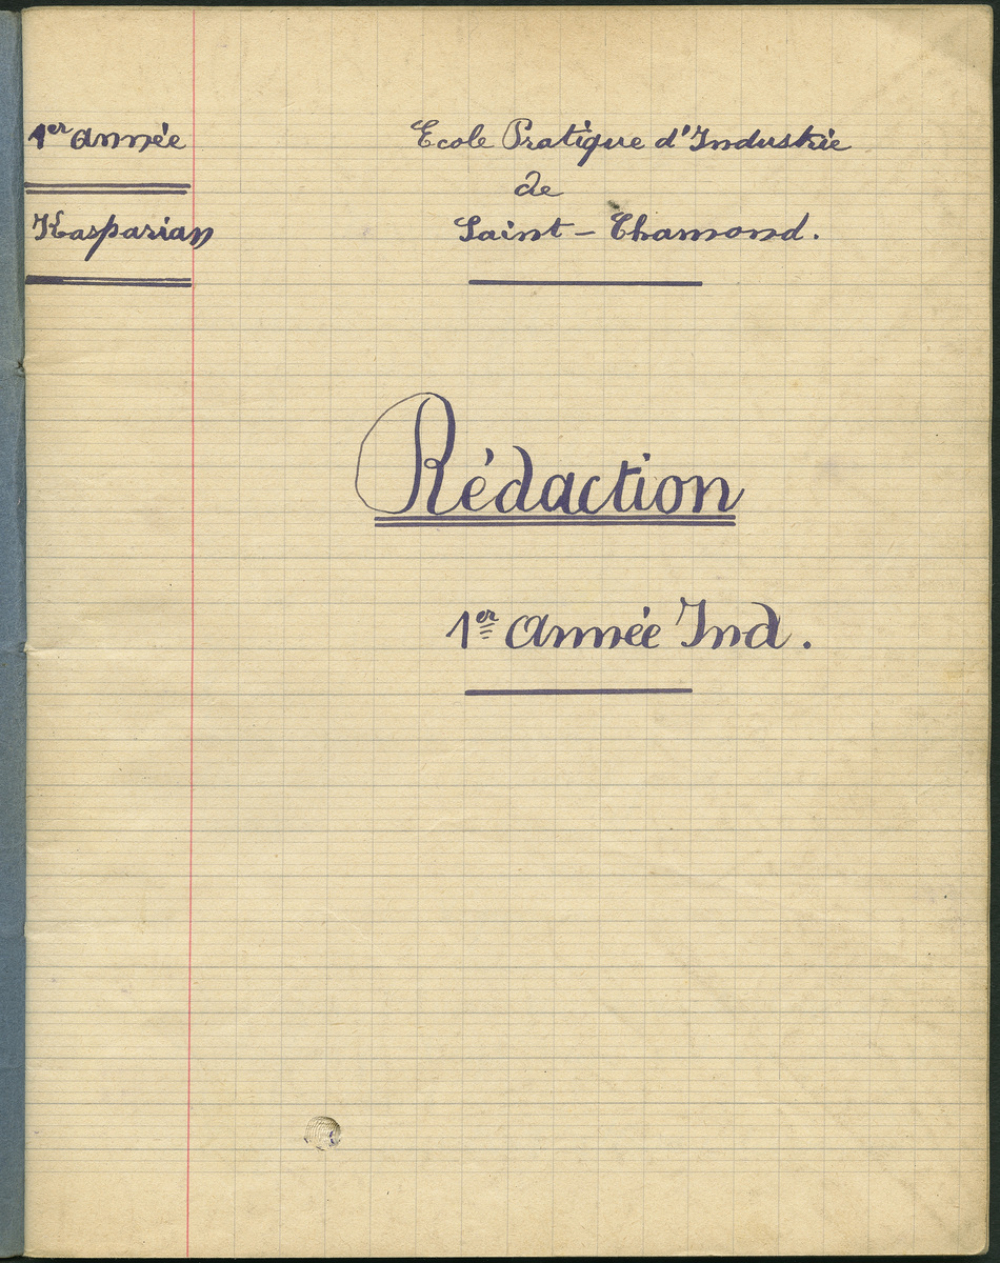 1er année
Kasparian
Ecole Pratique d'Industrie
de
Saint-Chamond.
Rédaction
1er année Ind.